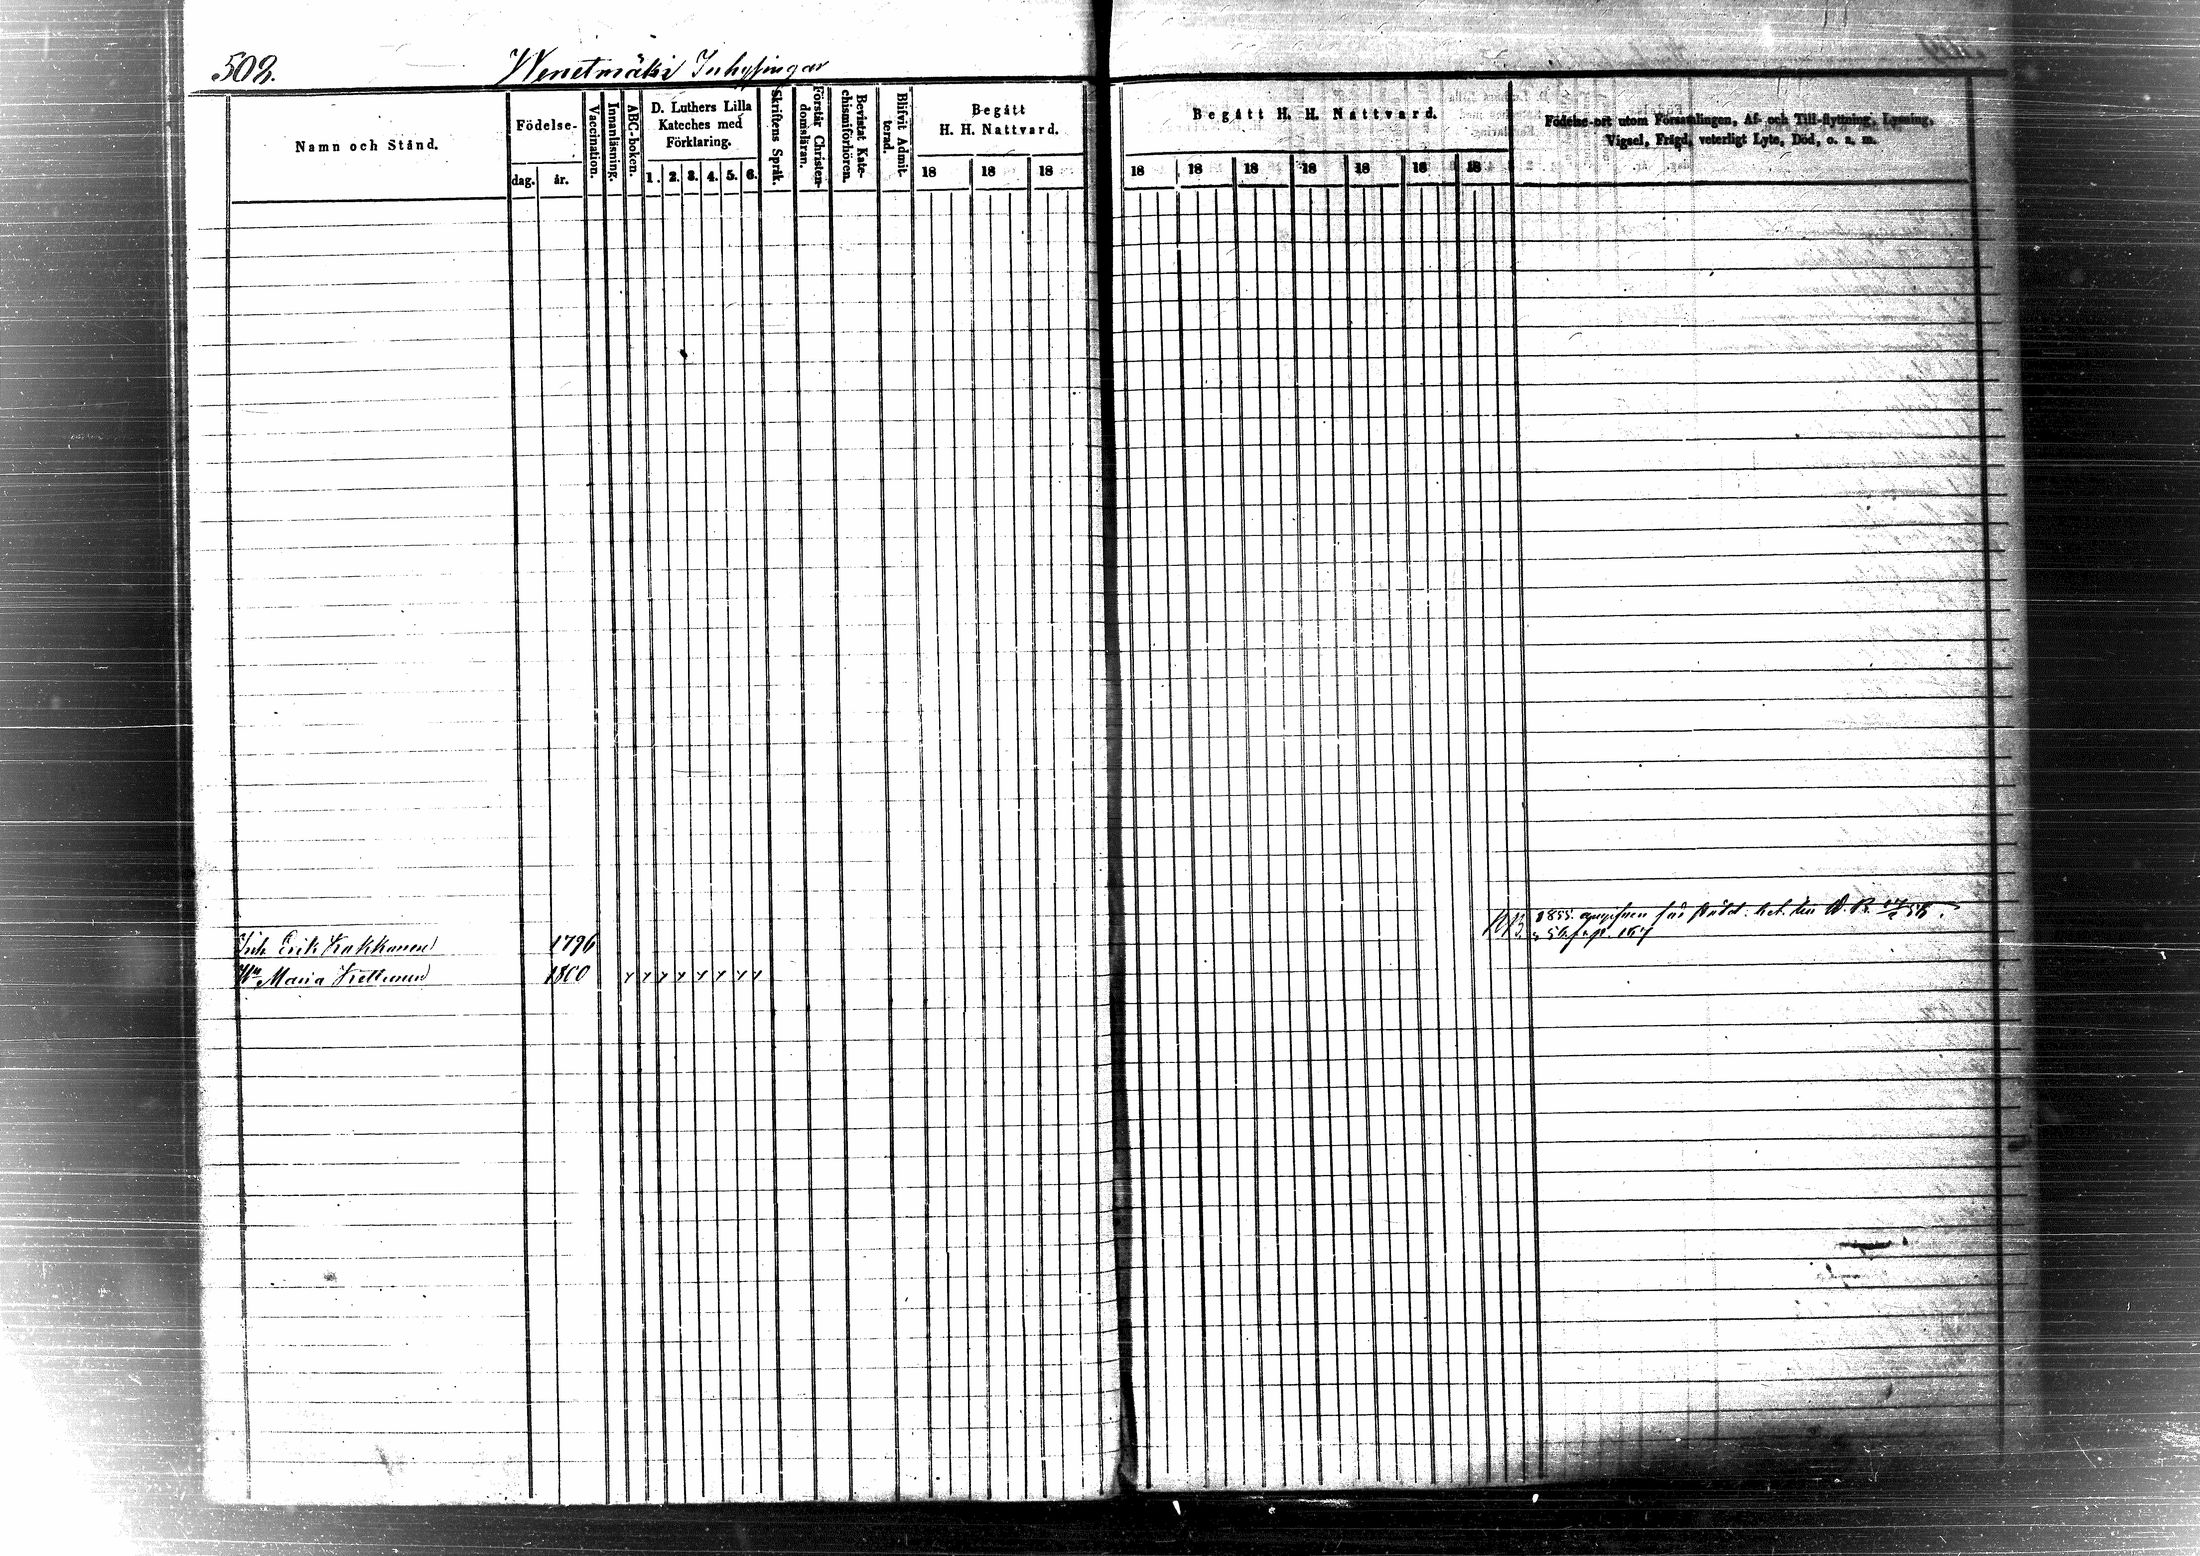 502.
Wenetmäki Inhysingar
Namn och Stånd.
Födelse-
dag. år.
Vaccination.
Innanläsning.
ABC-boken.
D. Luthers Lilla
Kateches med
Förklaring.
1. 2. 3. 4. 5. 6.
Skriftens Språk.
Förstår Christen-
domsläran.
Bevistat Kate-
chismiförhören.
Blifvit Admit-
terad.
Begått
H. H. Nattvard.
18 18 18
Begått H. H. Nattvard.
18 18 18 18 18 18 18
Födelse-ort utom Församlingen, Af- och Till-flyttning, Lysning,
Vigsel, Frägd, veterligt Lyte, Död, o. a. m.
1855
Inh. Erik Kakkonen 1796
Hu Maria Kettunen 1800